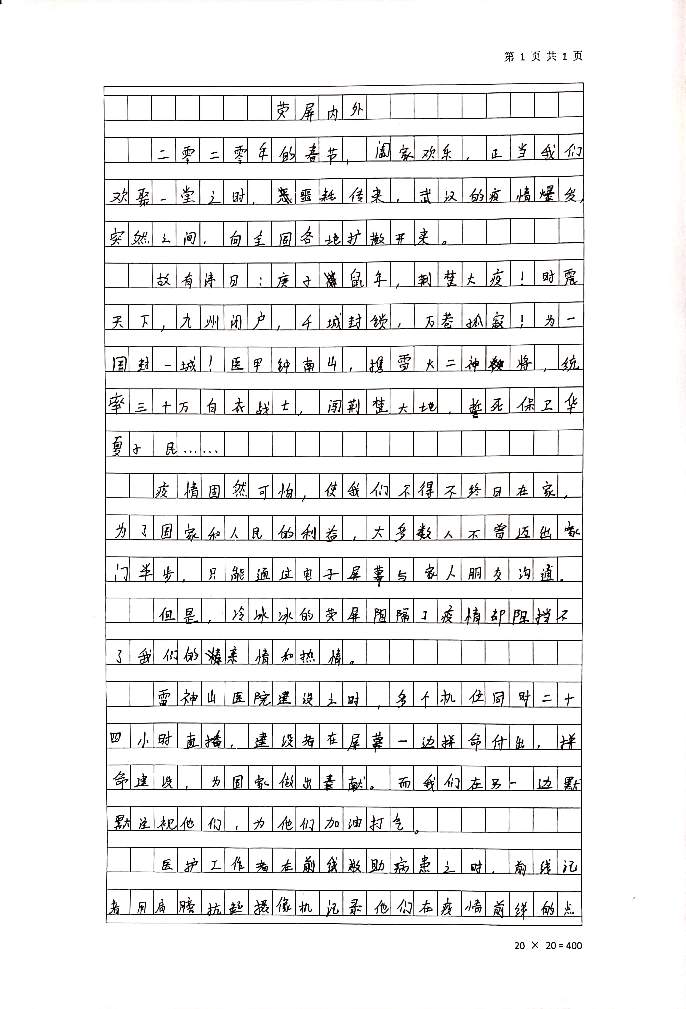 第 1 页 共 1 页
荧屏内外
二零二零年的春节，阖家欢乐，正当我们
欢聚一堂之时，噩耗传来，武汉的疫情爆发，
突然之间，向全国各地扩散开来。
故有诗曰：庚子鼠年，荆楚大疫！时震
天下，九州闭户，千城封锁，万巷孤寂！为一
国封一城！医甲钟南山，携雷火二神将，统
率三十万白衣战士，闯荆楚大地，誓死保卫华
夏子民……
疫情固然可怕，使我们不得不终日在家，
为了国家和人民的利益，大多数人不曾迈出家
门半步，只能通过电子屏幕与家人朋友沟通。
但是，冷冰冰的荧屏阻隔了疫情却阻挡不
了我们的亲情和热情。
雷神山医院建设之时，多个机位同时二十
四小时直播，建设者在屏幕一边拼命付出，拼
命建设，为国家做出贡献。而我们在另一边默
默注视他们，为他们加油打气。
医护工作者在前线救助病患之时，前线记
者用肩膀抗起摄像机记录他们在疫情前线的点
20 × 20 = 400